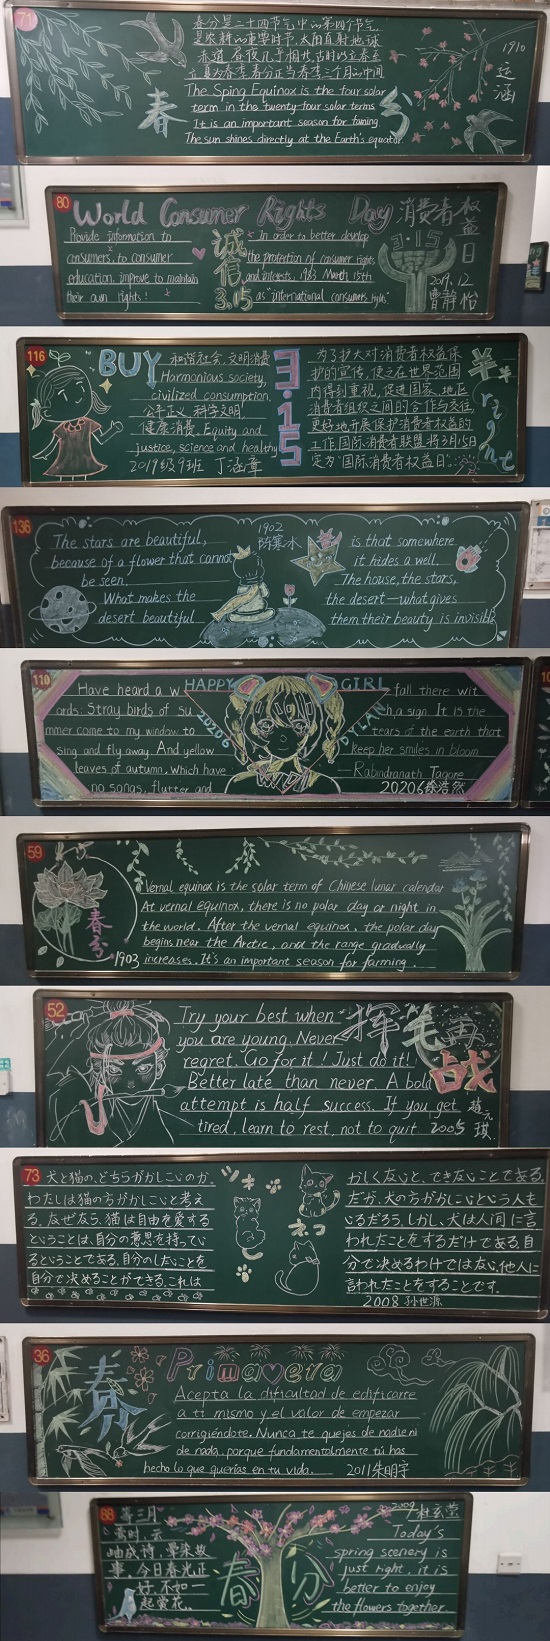 71
春分是二十四节气中的第四个节气
是农耕的重要时节,太阳直射地球
赤道,昼夜几乎相等,古时以立春至
立夏为春季,春分正当春季三个月的中间
The Sping Equinox is the four solar
term in the twenty-four solar terms
It is an important season for faming.
The sun shines directly at the Earth's equator.
春
分
1910
80
World Consumer Rights Day
消费者权益日
Provide information to
consumers, to consumer
education, improve to maintain
their own rights!
诚信
3.15
In order to better develop
the protection of consumer rights
and interests, 1983 March 15th
as "international consumers rights."
3.15
2019.12
曹静怡
116
BUY
和谐社会,文明消费
Harmonious society,
civilized consumption,
公平正义,科学文明
健康消费, Equity and
justice, science and healthy
2019级9班 丁涵章
3·15
为了扩大对消费者权益保
护的宣传,使之在世界范围
内得到重视,促进国家、地区
消费者组织之间的合作与交往,
更好地开展保护消费者权益的
工作,国际消费者联盟将3月15日
定为"国际消费者权益日"。
right
136
The stars are beautiful,
because of a flower that cannot
be seen.
What makes the
desert beautiful
1902
陈寒冰
is that somewhere
it hides a well.
The house, the stars,
the desert—what gives
them their beauty is invisible
110
HAPPY GIRL
20206 DYLAN
Have heard a w
ords: Stray birds of su
mmer come to my window to
sing and fly away. And yellow
leaves of autumn, which have
no songs, flutter and
fall there wit
h a sign. It is the
tears of the earth that
keep her smiles in bloom
—Rabindranath Tagore
20206徐浩然
59
春分
1903
Vernal equinox is the solar term of Chinese lunar calendar
At vernal equinox, there is no polar day or night in
the world. After the vernal equinox, the polar day
begins near the Arctic, and the range gradually
increases. It's an important season for farming.
52
Try your best when
you are young. Never
regret. Go for it! Just do it!
Better late than never. A bold
attempt is half success. If you get
tired, learn to rest, not to quit
挥笔
战
2005
73
犬と猫の、どちらがかしこいのか。
わたしは猫の方がかしこいと考え
る。なぜなら、猫は自由を愛する
ということは、自分の意思を持ってい
るということである。自分のしたいことを
自分で決めることができる。これは
ツキ
ネコ
おしくないと、できないことである。
だが、犬の方がかしこいという人も
いるだろう。しかし、犬は人間に言
われたことをするだけである。自
分で決めるわけではない、他人に
言われたことをすることです。
2008 孙世源
36
春分
Primavera
Acepta la dificultad de edificarte
a ti mismo y el valor de empezar
corrigiéndote. Nunca te quejes de nadie ni
de nada, porque fundamentalmente tú has
hecho lo que querías en tu vida.
2011朱明宇
88
等三月
莺时,云
岫成诗,晕染故
事。今日春光正
好,不如一
起赏花。
春分
2009 杜玄莹
Today's
spring scenery is
just right, it is
better to enjoy
the flowers together